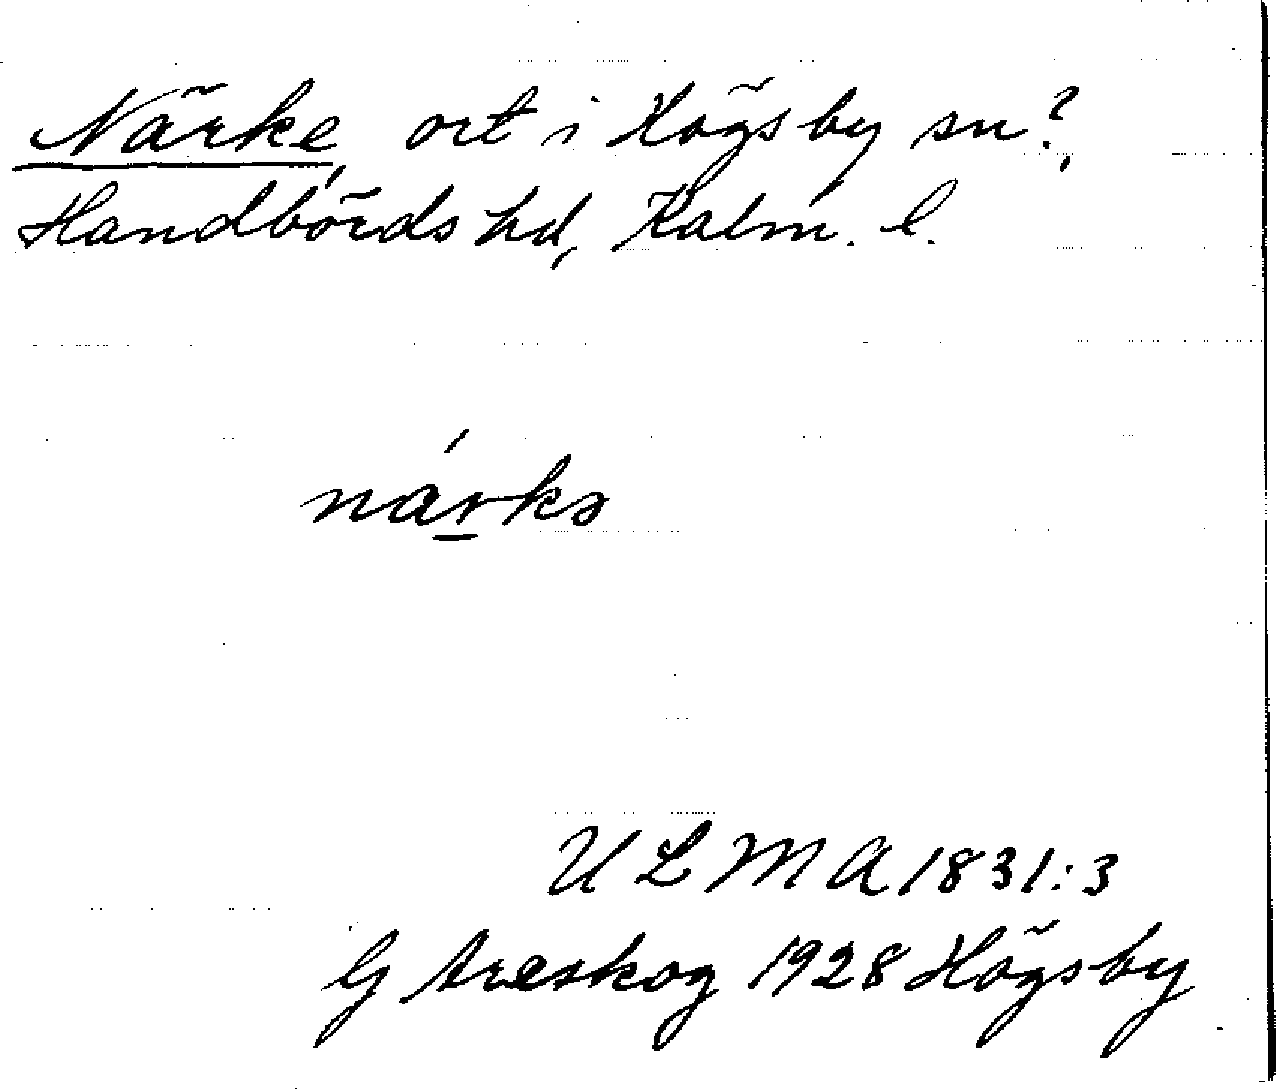 Närke, ort i Högsby sn?,
Handbörds hd, Kalm. l.
nárkə
ULMA 1831:3
G Areskog 1928 Högsby